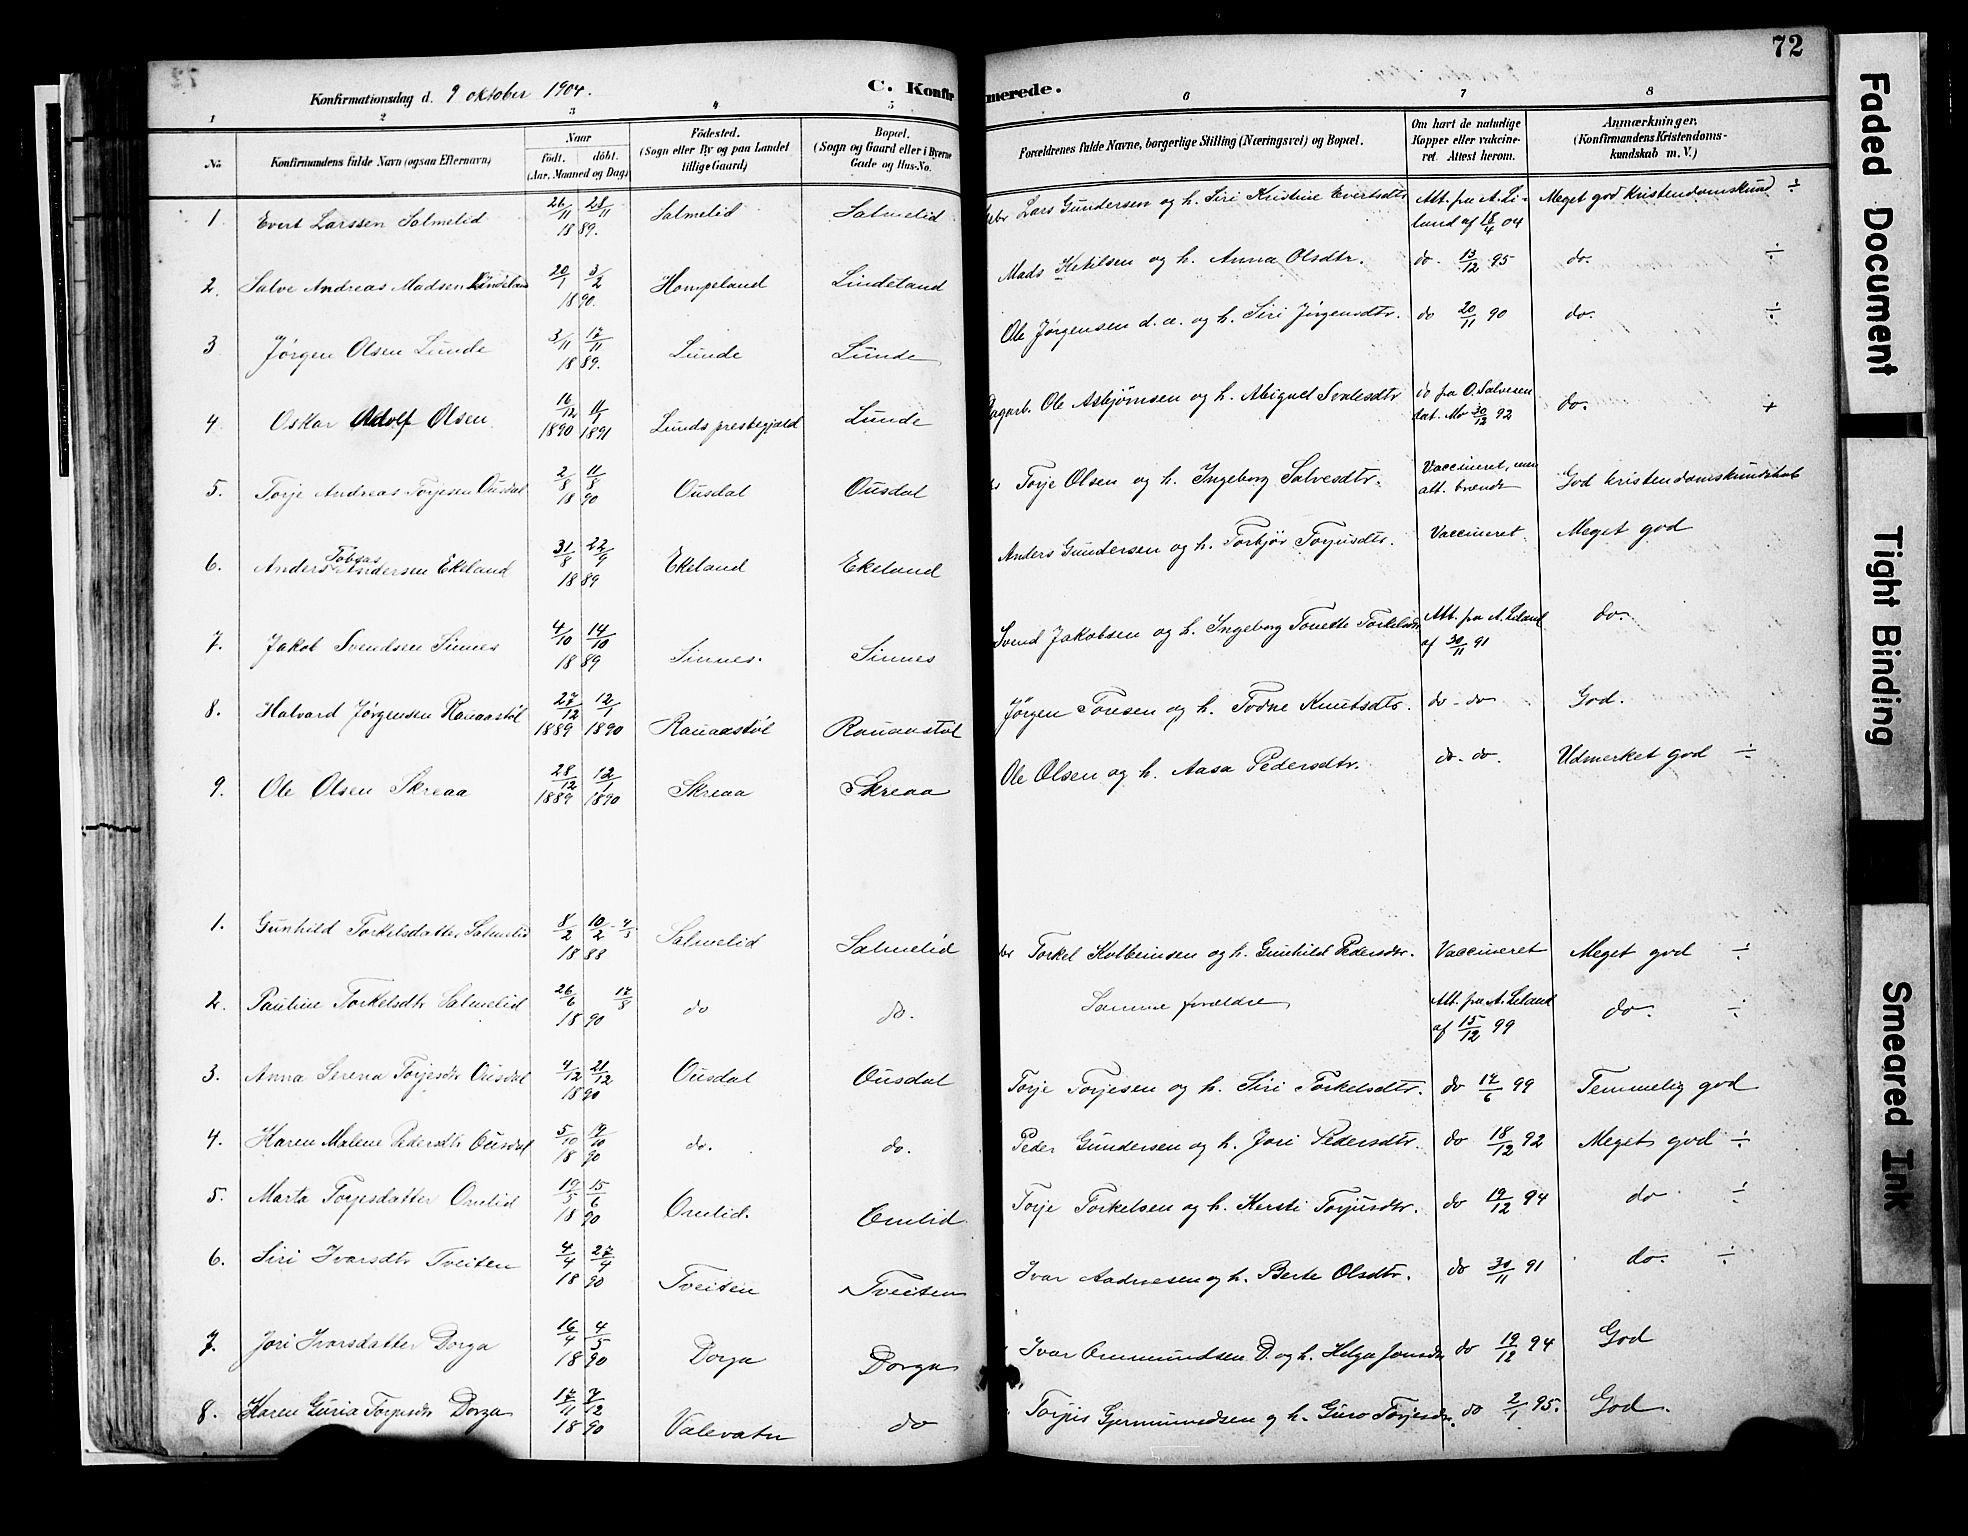 72
Konfirmationsdag d. 9 oktober 1904.
C. Konfirmerede.
1 2 3 4 5 6 7 8
No.
Konfirmandens fulde Navn (ogsaa Efternavn)
Naar
födt. döbt.
(Aar, Maaned og Dag)
Födested.
(Sogn eller By og paa Landet
tillige Gaard)
Bopæl.
(Sogn og Gaard eller i Byerne
Gade og Hus-No.
Forældrenes fulde Navne, borgerlige Stilling (Næringsvei) og Bopæl.
Om havt de naturlige
Kopper eller vakcine-
ret. Attest herom.
Anmærkninger.
(Konfirmandens Kristendoms-
kundskab m. V.)
1 Evert Larssen Salmelid 26/11 28/11 1889. Salmelid Salmelid Lars Gundersen og h. Siri Kristine Evertsdtr Att. fra A. Li-land af 18/4 04 Meget god kristendomskund ÷
2. Salve Andreas Madsen Lindeland 20/1 3/2 1890. Hompeland Lindeland Mads Ketilsen og h. Anna Olsdtr. do. 13/12 95 do. ÷
3 Jørgen Olsen Lunde 3/11 17/11 1889. Lunde Lunde Ole Jørgensen d. æ. og h. Siri Jørgensdtr. do 20/11 90 do. ÷
4 Oskar Adolf Olsen 16/12 1890 11/1 1891 Lunds prestegjæld Lunde Ole Asbjørnsen og h. Abigael do fra O. Salvesen dat. Mo 30/12 92 do. +
5. Torje Andreas Torjesen Ousdal 2/8 11/8 1890 Ousdal Ousdal Torje Olsen og h. Ingeborg Salvesdtr. Vaccineret, men att. brændt God kristendomskundskab
6. Anders Tobias Andersen Ekeland 31/8 22/9 1889 Ekeland Ekeland Anders Gundersen og h. Torbjør Torjusdtr. Vaccineret Meget god
7. Jakob Svendsen Sinnes 4/10 14/10 1889 Sinnes. Sinnes Svend Jakobsen og h. Ingeborg Tonette Torkelsdtr Att. fra A. Liland af 30/11 91 do.
8. Halvard Jørgensen Rauaastøl 27/12 1889 12/1 1890 Rauaastøl Rauaastøl Jørgen Tonesen og h. Todne Knutsdtr. do - do God.
9. Ole Olsen Skreaa 28/12 1889 12/1 1890 Skreaa Skreaa Ole Olsen og h. Aasa Pedersdtr. do. do. Udmerket god ÷
1. Gunhild Torkelsdatter Salmelid 8/2 10/2 - 4/3 1888 Salmelid Salmelid Torkel Kolbeinsen og h. Gunhild Pedersdtr. Vaccineret Meget god ÷
2. Pauline Torkelsdtr Salmelid 26/6 17/8 1890 do do. Samme forældre Att. fra A. Liland af 15/12 99 do. ÷
3. Anna Serena Torjesdtr Ousdal 4/12 21/12 1890 Ousdal Ousdal Torje Torjesen og h. Siri Torkelsdtr. do 17/6 99 Temmelig god
4. Karen Malene Pedersdtr Ousdal 5/10 19/10 1890 do. do. Peder Gundersen og h. Jori Pedersdtr. do 18/12 92 Meget god ÷
5. Marta Torjesdatter Omlid 19/5 15/6 1890 Omlid. Omlid Torje Torkelsen og h. Kersti Torjusdtr. do 19/12 94 do ÷
6. Siri Ivarsdtr Tveiten 4/4 27/4 1890 Tveiten Tveiten Ivar Aadnesen og h. Berte Olsdtr. do 30/11 91 do. ÷
7. Jori Ivarsdatter Dorga 16/4 4/5 1890 Dorga Dorga Ivar Ommundsen D. og h. Helga Jonsdtr do 19/12 94 God
8. Karen Guria Torjusdtr Dorga 17/11 7/12 1890 Valevatn do Torjus Gjermundsen og h. Guro Torjesdtr. do 2/1 95. God.
Faded Document
Tight Binding
Smeared Ink